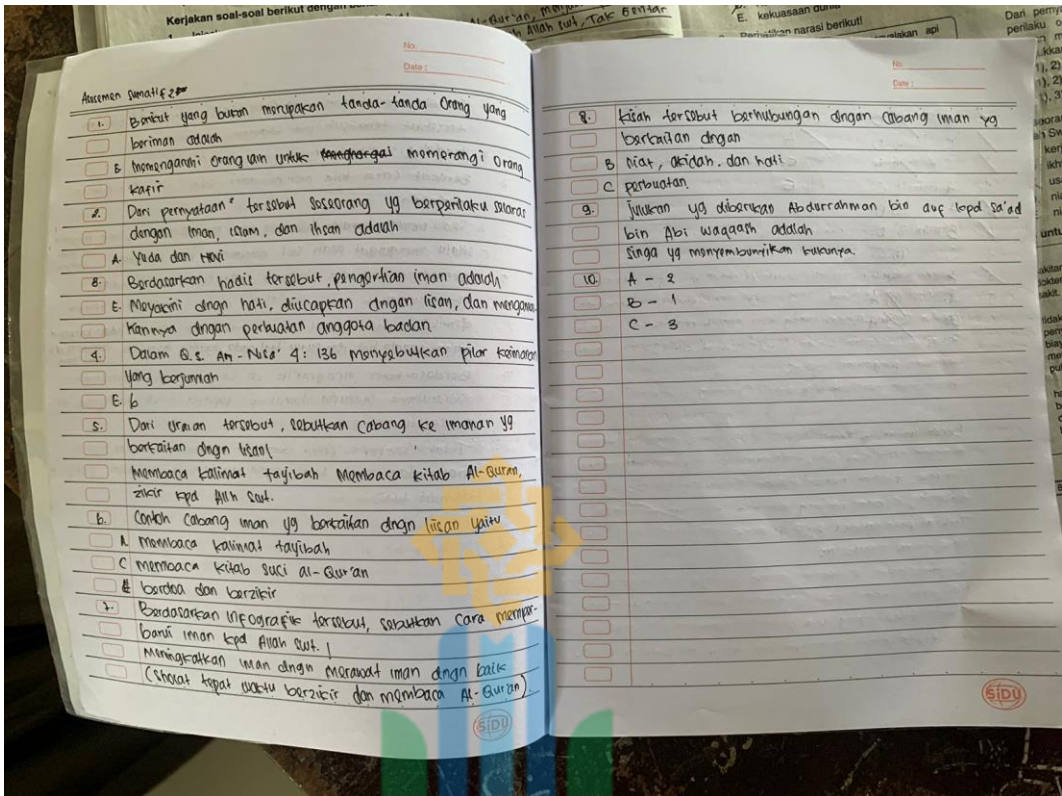 Kerjakan soal-soal berikut dengan
Al-Qur'an,
Allah Swt, Tak
E. kekuasaan dunia
narasi berikut!
api
Dari
perilaku
No.
Date :
Assesmen Sumatif 2
1. Berikut yang bukan merupakan tanda-tanda Orang yang
beriman adalah
B memengaruhi orang lain untuk memerangi Orang
kafir
2. Dari pernyataan² tersebut seseorang yg berperilaku selaras
dengan iman, islam, dan ihsan adalah
A. Yuda dan Novi
3. Berdasarkan hadis tersebut, pengertian iman adalah
E. Meyakini dngn hati, diucapkan dngan lisan, dan mengamal-
kannya dngan perbuatan anggota badan
4. Dalam Q.s. An-Nisa' 4: 136 menyebutkan pilar keimanan
yang berjumlah
E. 6
5. Dari uraian tersebut, sebutkan cabang ke imanan yg
berkaitan dngn lisan!
Membaca kalimat tayibah Membaca kitab Al-Quran,
zikir kpd Allh Swt.
6. Contoh cabang iman yg berkaitan dngn liisan yaitu
A membaca kalimat tayibah
C membaca kitab suci al-Qur'an
berdoa dan berzikir
7. Berdasarkan infografik tersebut, sebutkan cara memper-
barui iman kpd Allah swt. !
Meningkatkan iman dngn merawat iman dngn baik
(Sholat tepat waktu berzikir dan membaca Al-Quran)
SiDU
No.
Date :
8. kisah tersebut berhubungan dngan cabang iman yg
berkaitan dngan
B niat, akidah, dan hati
C perbuatan.
9. julukan yg diberikan Abdurrahman bin auf kpd sa'ad
bin Abi waqaash adalah
singa yg menyembunyikan kukunya.
10. A - 2
B - 1
C - 3
SiDU